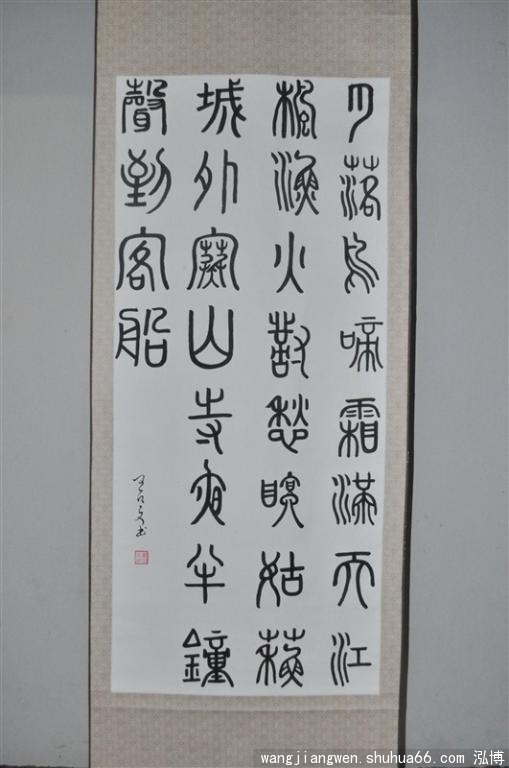 月落烏啼霜滿天江
楓漁火對愁眠姑蘇
城外寒山寺夜半鐘
聲到客船
wangjiangwen.shuhua66.com 泓博